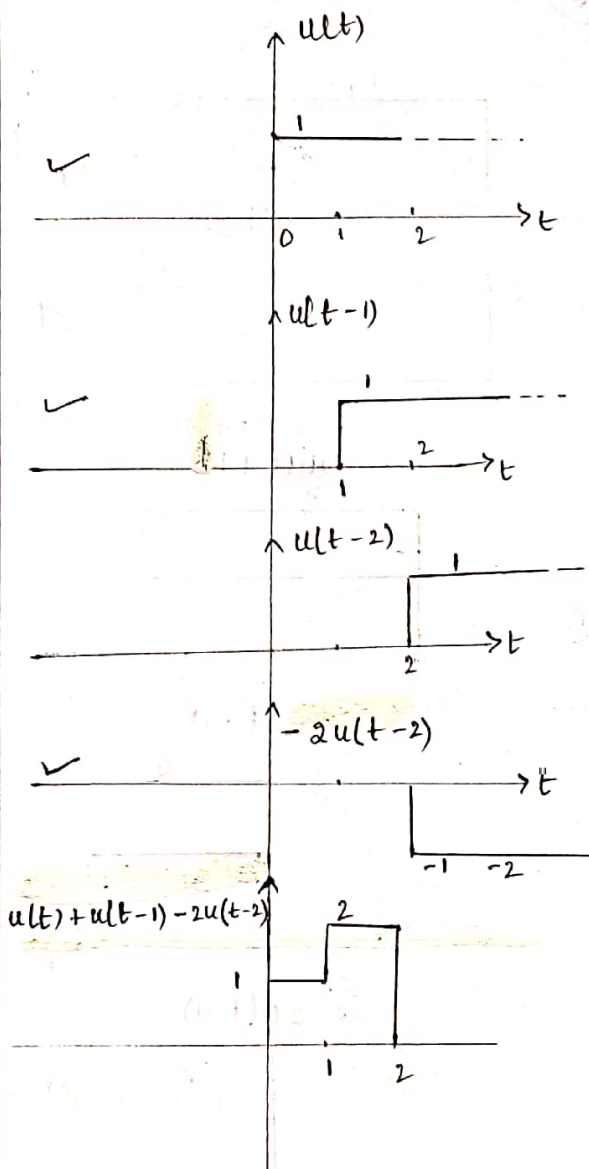 u(t)
1
0 1 2 t
u(t-1)
1
2
1 t
u(t-2)
1
2 t
-2u(t-2)
t
-1 -2
u(t)+u(t-1)-2u(t-2)
2
1
1 2